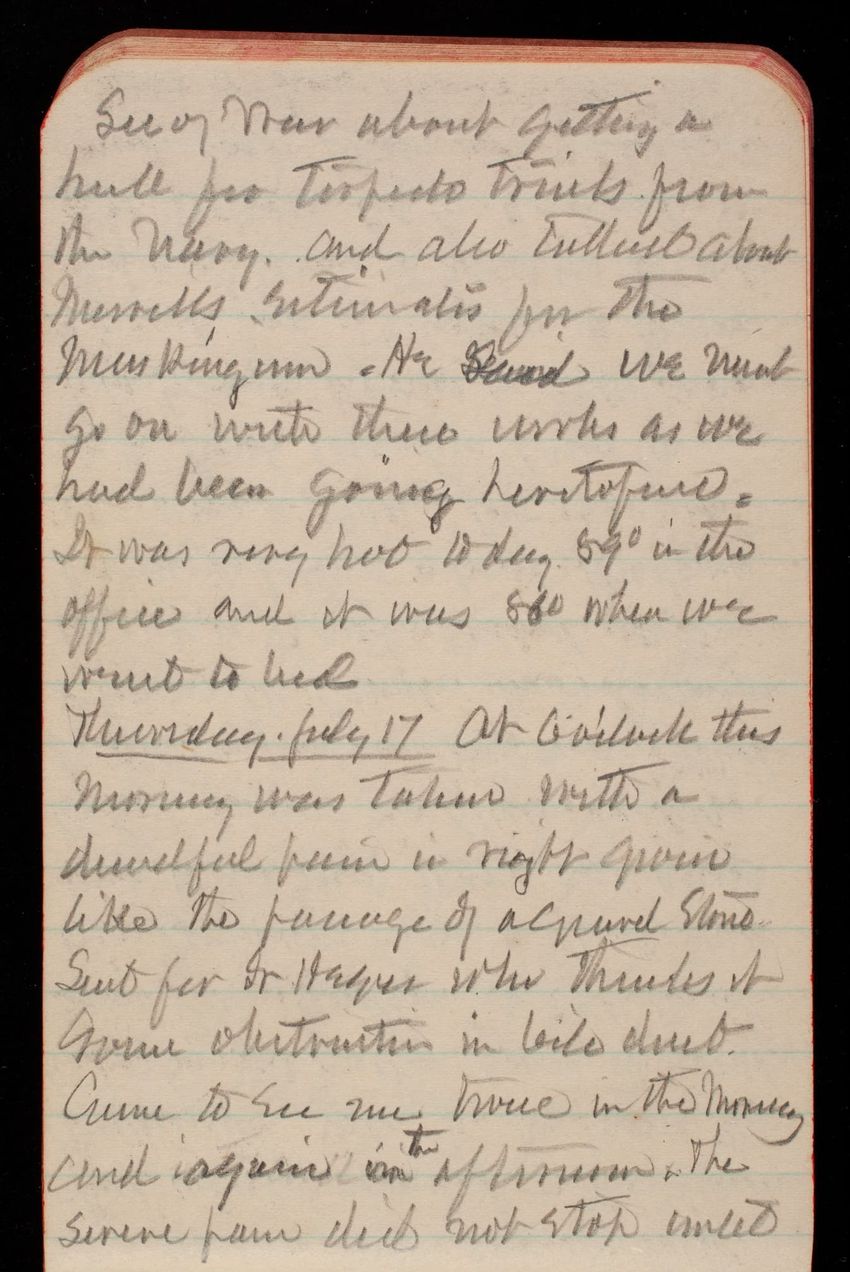 Sec of War about getting a
hull for torpedo trials from
the Navy. and also talked about
Merrills Estimates for the
Muskingum. He said we must
go on with these works as we
had been going heretofore.
It was very hot today 89° in the
office and it was 86° when we
went to bed
Thursday. July 17 At 6 o'clock this
Morning was taken with a
dreadful pain in right groin
like the passage of a gravel Stone
Sent for Dr Heger who thinks it
Some obstruction in bile duct.
Came to See me twice in the Morning
and again in the afternoon. The
severe pain did not stop until